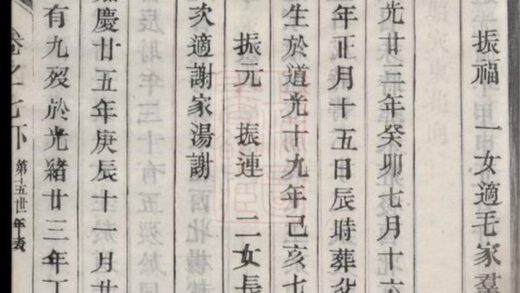 振福 一女適毛家羣
光廿二年癸卯七月十六
年正月十五日辰時葬
生於道光十九年己亥七
振元 振連 二女長
次適謝家湯謝
慶廿五年庚辰十一月廿
有九歿於光緒廿三年丁
卷之七下 第十五世年表